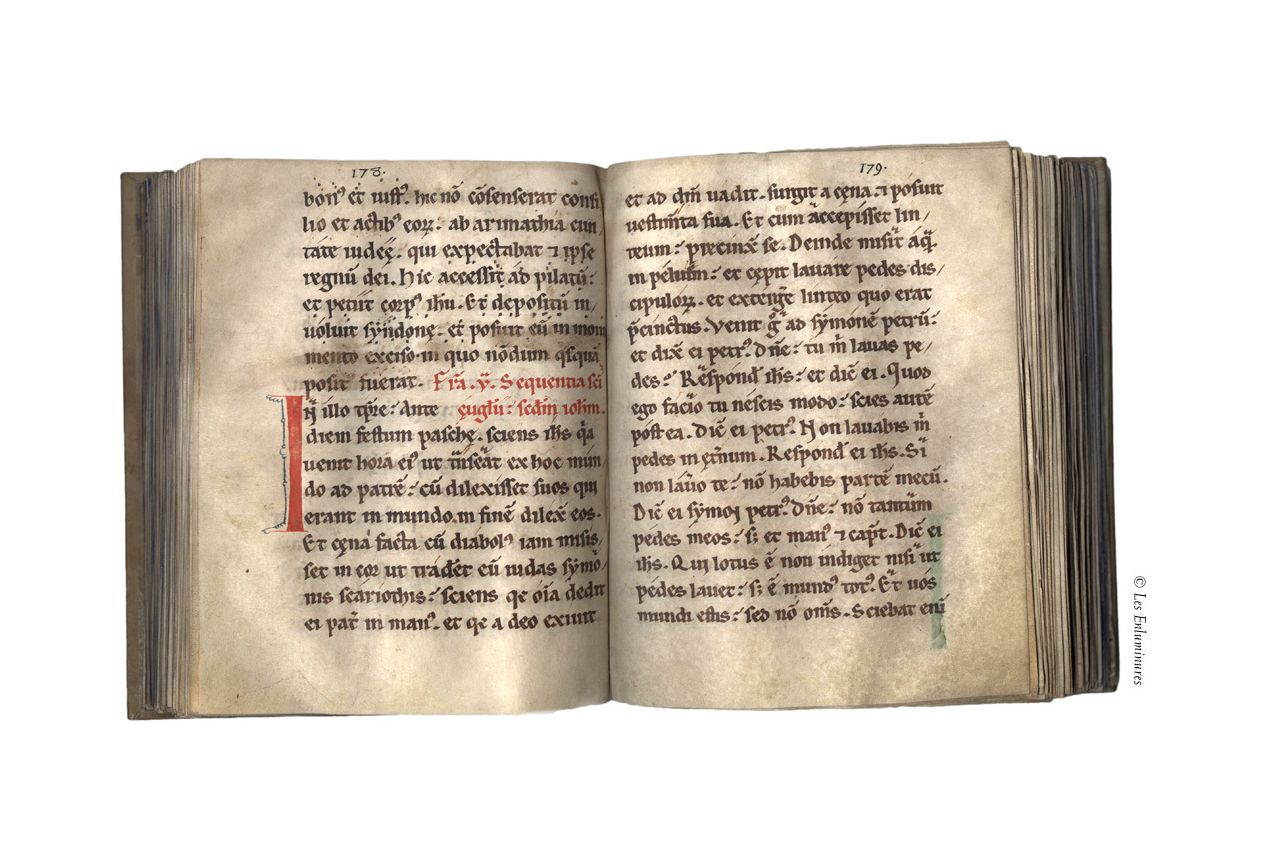 178.
bon᷒ et iust᷒. hic nō cōsenserat consi
lio et actib᷒ eoꝝ. ab arimathia ciui
tate iudeę. qui expectabat ⁊ ipse
regnū dei. Hic accessit ad pilatū:
et petiit corp᷒ ihu. Et depositū in/
uoluit syndone. et posuit eū in monu
mento exciso in quo nōdum qisquā
posit᷒ fuerat. Fr̄a. v̄. Sequentia sci
IN illo tp̄re: Ante euglii: scdm iohm.
diem festum paschę. sciens ihs qa
uenit hora ei᷒ ut tnseat ex hoc mun/
do ad patrē: cū dilexisset suos qui
erant in mundo. in finē dilex̄ eos.
Et cęna facta cū diabol᷒ iam misis/
set in cor ut traderet eū iudas symo/
nis scariothis: sciens qe oīa dedit
ei pat̄ in man᷒. et qe a deo exiuit
179.
et ad dm̄ uadit. surgit a cęna ⁊ posuit
uestimta sua. Et cum accepisset lin/
teum: precinx̄ se. Deinde misit aq̄
in peluim: et cępit lauare pedes dis/
cipuloꝝ. et extenge linteo quo erat
p̄cinctus. Venit g̊ ad symonē petrū:
et dix̄ ei petr᷒. Dn̄e: tu m̄ lauas pe/
des: Respond̄ ihs: et dic̄ ei. Quod
ego facio tu nescis modo: scies autē
postea. Dic̄ ei petr᷒. Non lauabis m̄
pedes in ęt̄num. Respond̄ ei ihs. Si
non lauo te: nō habebis partē mecū.
Dic̄ ei symon petr᷒. Dn̄e: nō tantum
pedes meos: sꝫ et man᷒ ⁊ capt̄. Dic̄ ei
ihs. Qui lotus ē non indiget nisi ut
pedes lauet: sꝫ ē mund᷒ tot᷒. Et uos
mundi estis: sed nō om̄s. Sciebat enī
© Les Enluminures